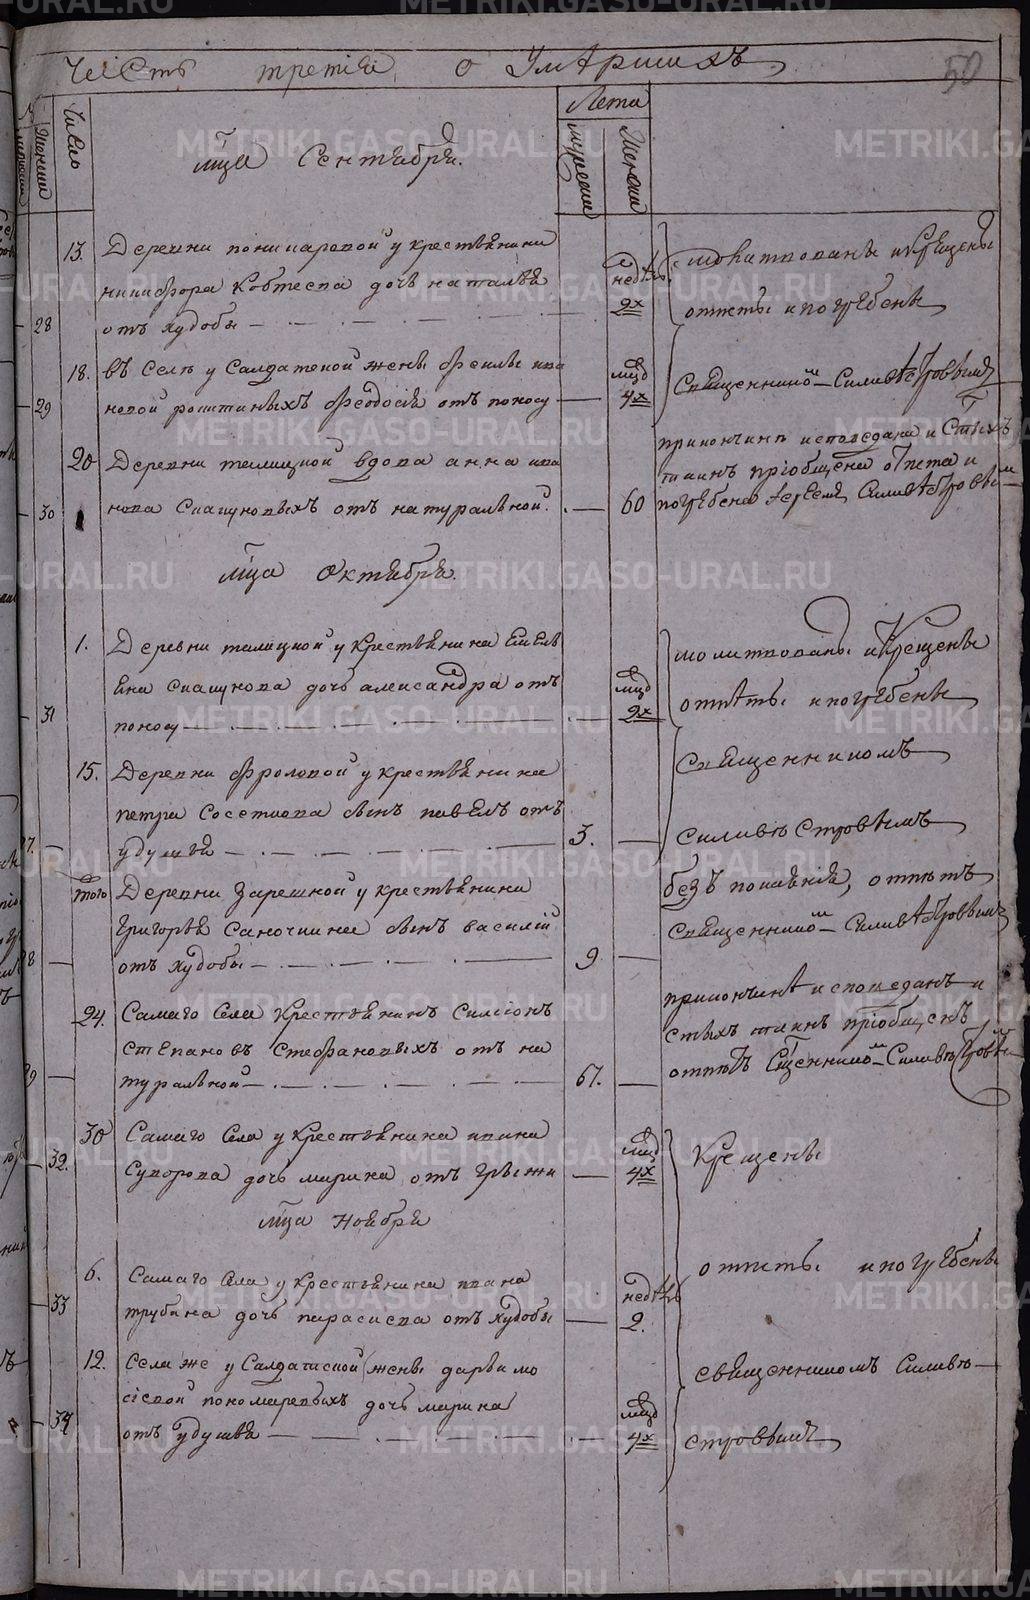 Часть третія о Умершихъ
50
Число
Лета
мужески
женски
мца Сентября.
28
13. Деревни понамаревой у крестьянина
никифора дочь наталья
отъ худобы
недѣль
2х
молитвованы и крещены
отпеты и погребены
29
18. въ Селѣ у Салдатской жены ива
новой Феодосія отъ поносу
мцовъ
4х
Священникомъ Силивестровымъ
30
20 Деревни талицкой вдова анна ива
нова Снагуновыхъ отъ натуральной.
60
исповедана и Стыхъ
таинъ пріобщена отпета и
погребена Іереемъ Силивестровымъ
мца Октября.
31
1. Деревни талицкой у крестьянина Емель
яна дочь александра отъ
поносу
мцовъ
2х
молитвованы и крещены
отпѣты и погребены
15. Деревни Фроловой у крестьянина
петра сынъ павелъ отъ
удушья
3.
Священникомъ
Силивестровымъ
того Деревни Зарешной у крестьянина
Григорья сынъ василій
отъ худобы
9
безъ покаянія, отпетъ
Священникомъ Силивестровымъ
24. Самаго Села Крестьянинъ Симіонъ
Степановъ Стефановыхъ отъ на
туральной
67.
исповеданъ и
стыхъ таинъ пріобщенъ
отпетъ Сщенникомъ Силивестровымъ
32.
30 Самаго Села у Крестьянина ивана
Суворова дочь марина отъ грыжи
мцовъ
4х
Крещены
мца Ноября
33
6. Самаго Села у Крестьянина ивана
трубина дочь параскева отъ худобы
недѣль
2.
отпеты и погребены
34
12. Села же у Салдатской жены дарьи мо
сіевой пономаревыхъ дочь марина
отъ удушья
мцовъ
4х
священникомъ Силиве
стровымъ
METRIKI.GASO-URAL.RU